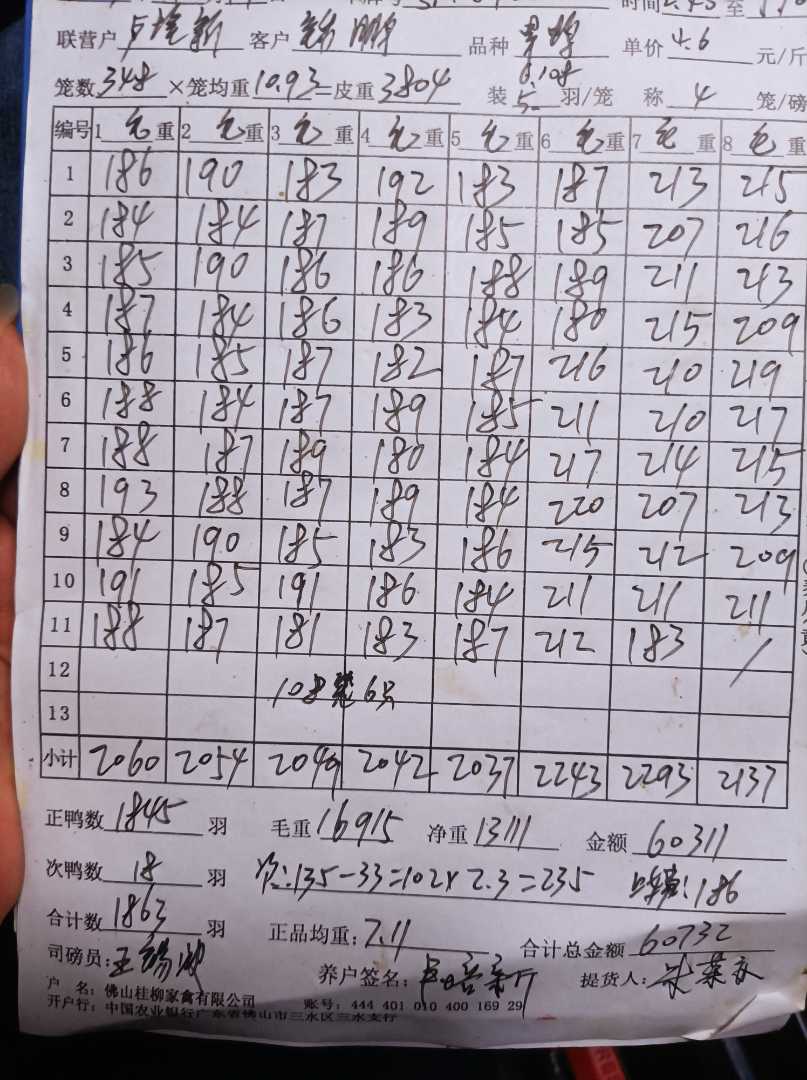 时间 2.45 至
联营户 卢培新 客户 品种 单价 4.6 元/斤
6.108
笼数 348 ×笼均重 10.93 =皮重 3804 装 5 羽/笼 称 4 笼/磅
编号 1 毛 重 2 毛 重 3 毛 重 4 毛 重 5 毛 重 6 毛 重 7 毛 重 8 毛 重
1 186 190 183 192 183 187 213 215
2 184 184 187 189 185 185 207 216
3 185 190 186 186 188 189 211 213
4 187 184 186 183 184 180 215 209
5 186 185 187 182 187 216 210 219
6 188 184 187 189 185 211 210 217
7 188 187 189 180 184 217 214 215
8 193 188 187 189 184 220 207 213
9 184 190 185 183 186 215 212 209
10 191 185 191 186 184 211 211 211
11 188 187 181 183 187 212 183 /
12 108笼6只
13
小计 2060 2054 2049 2042 2037 2243 2293 2137
正鸭数 1845 羽 毛重 16915 净重 13111 金额 60311
次鸭数 18 羽 次:135-33=102×2.3=235 上车费:186
合计数 1863 羽 正品均重: 7.11 合计总金额 60732
司磅员: 王 养户签名: 卢培新 提货人:
户 名: 佛山桂柳家禽有限公司 账号: 444 401 010 400 169 29
开户行: 中国农业银行广东省佛山市三水区三水支行